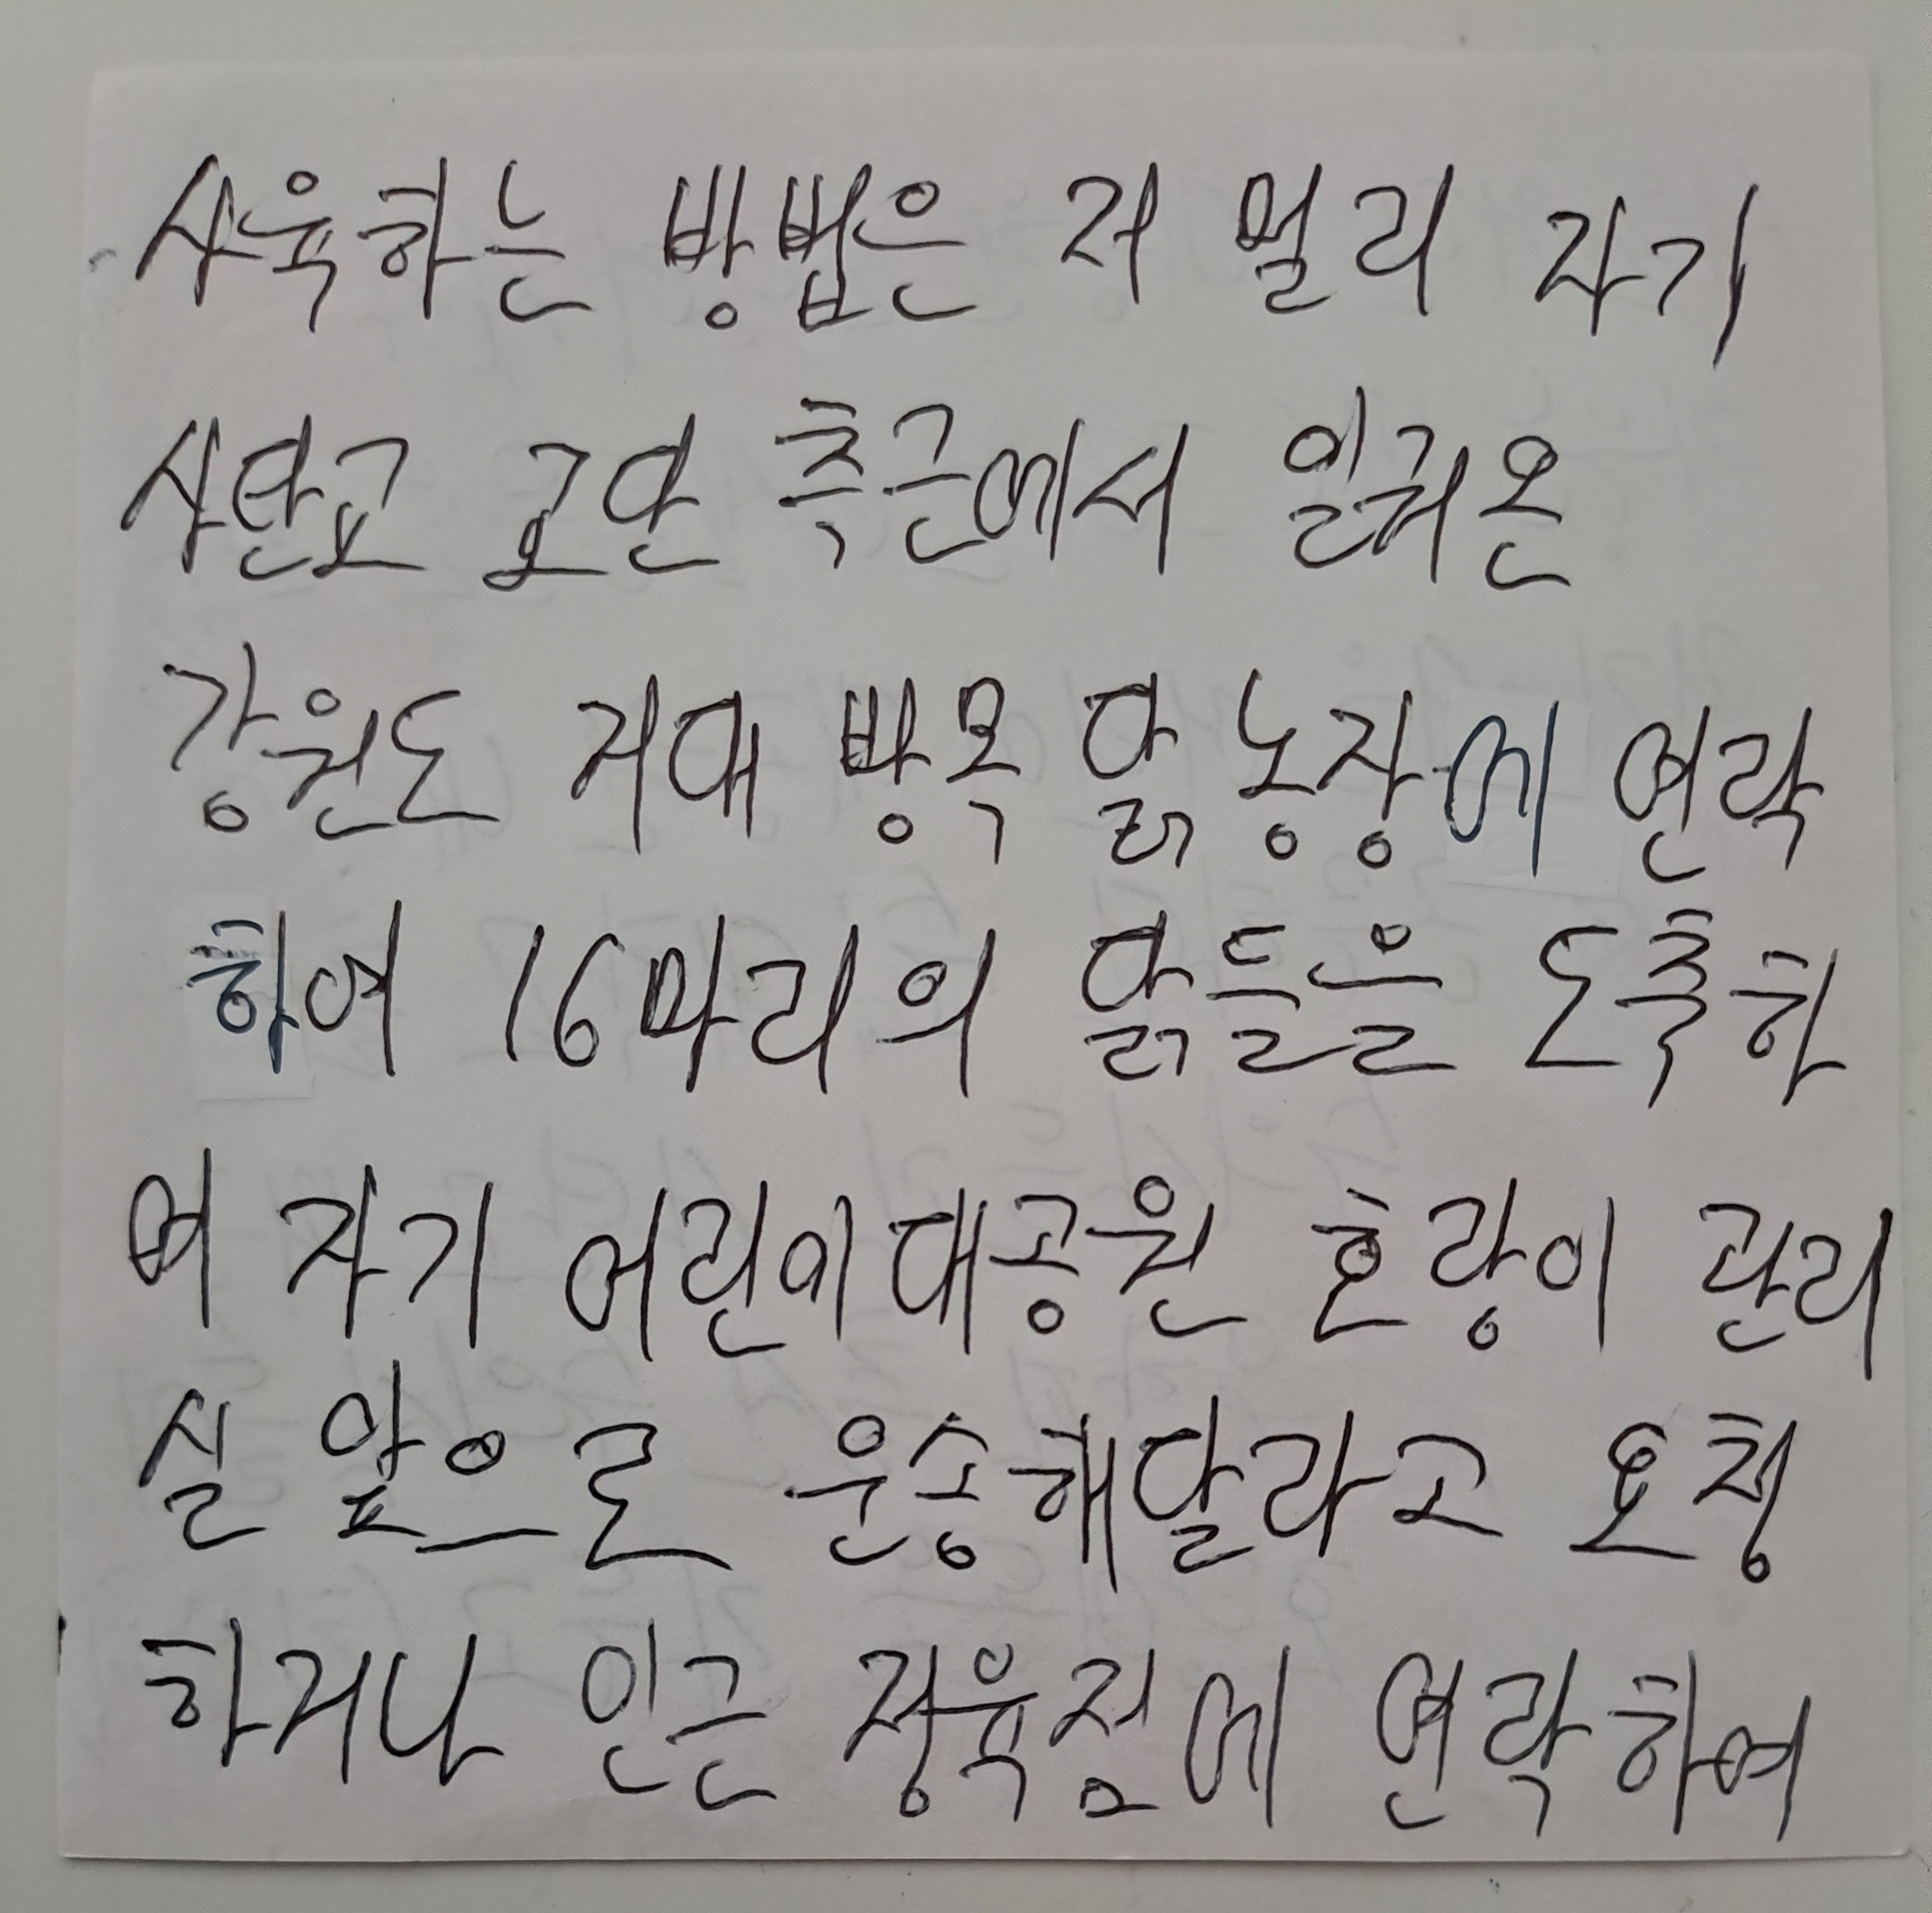 사육하는 방법은 저 멀리 자기
사탄교 교단 측근에서 일궈온
강원도 거대 방목 닭 농장에 연락
하여 16마리의 닭들을 도축하
여 자기 어린이대공원 호랑이 관리
실 앞으로 운송해달라고 요청
하거나 인근 정육점에 연락하여